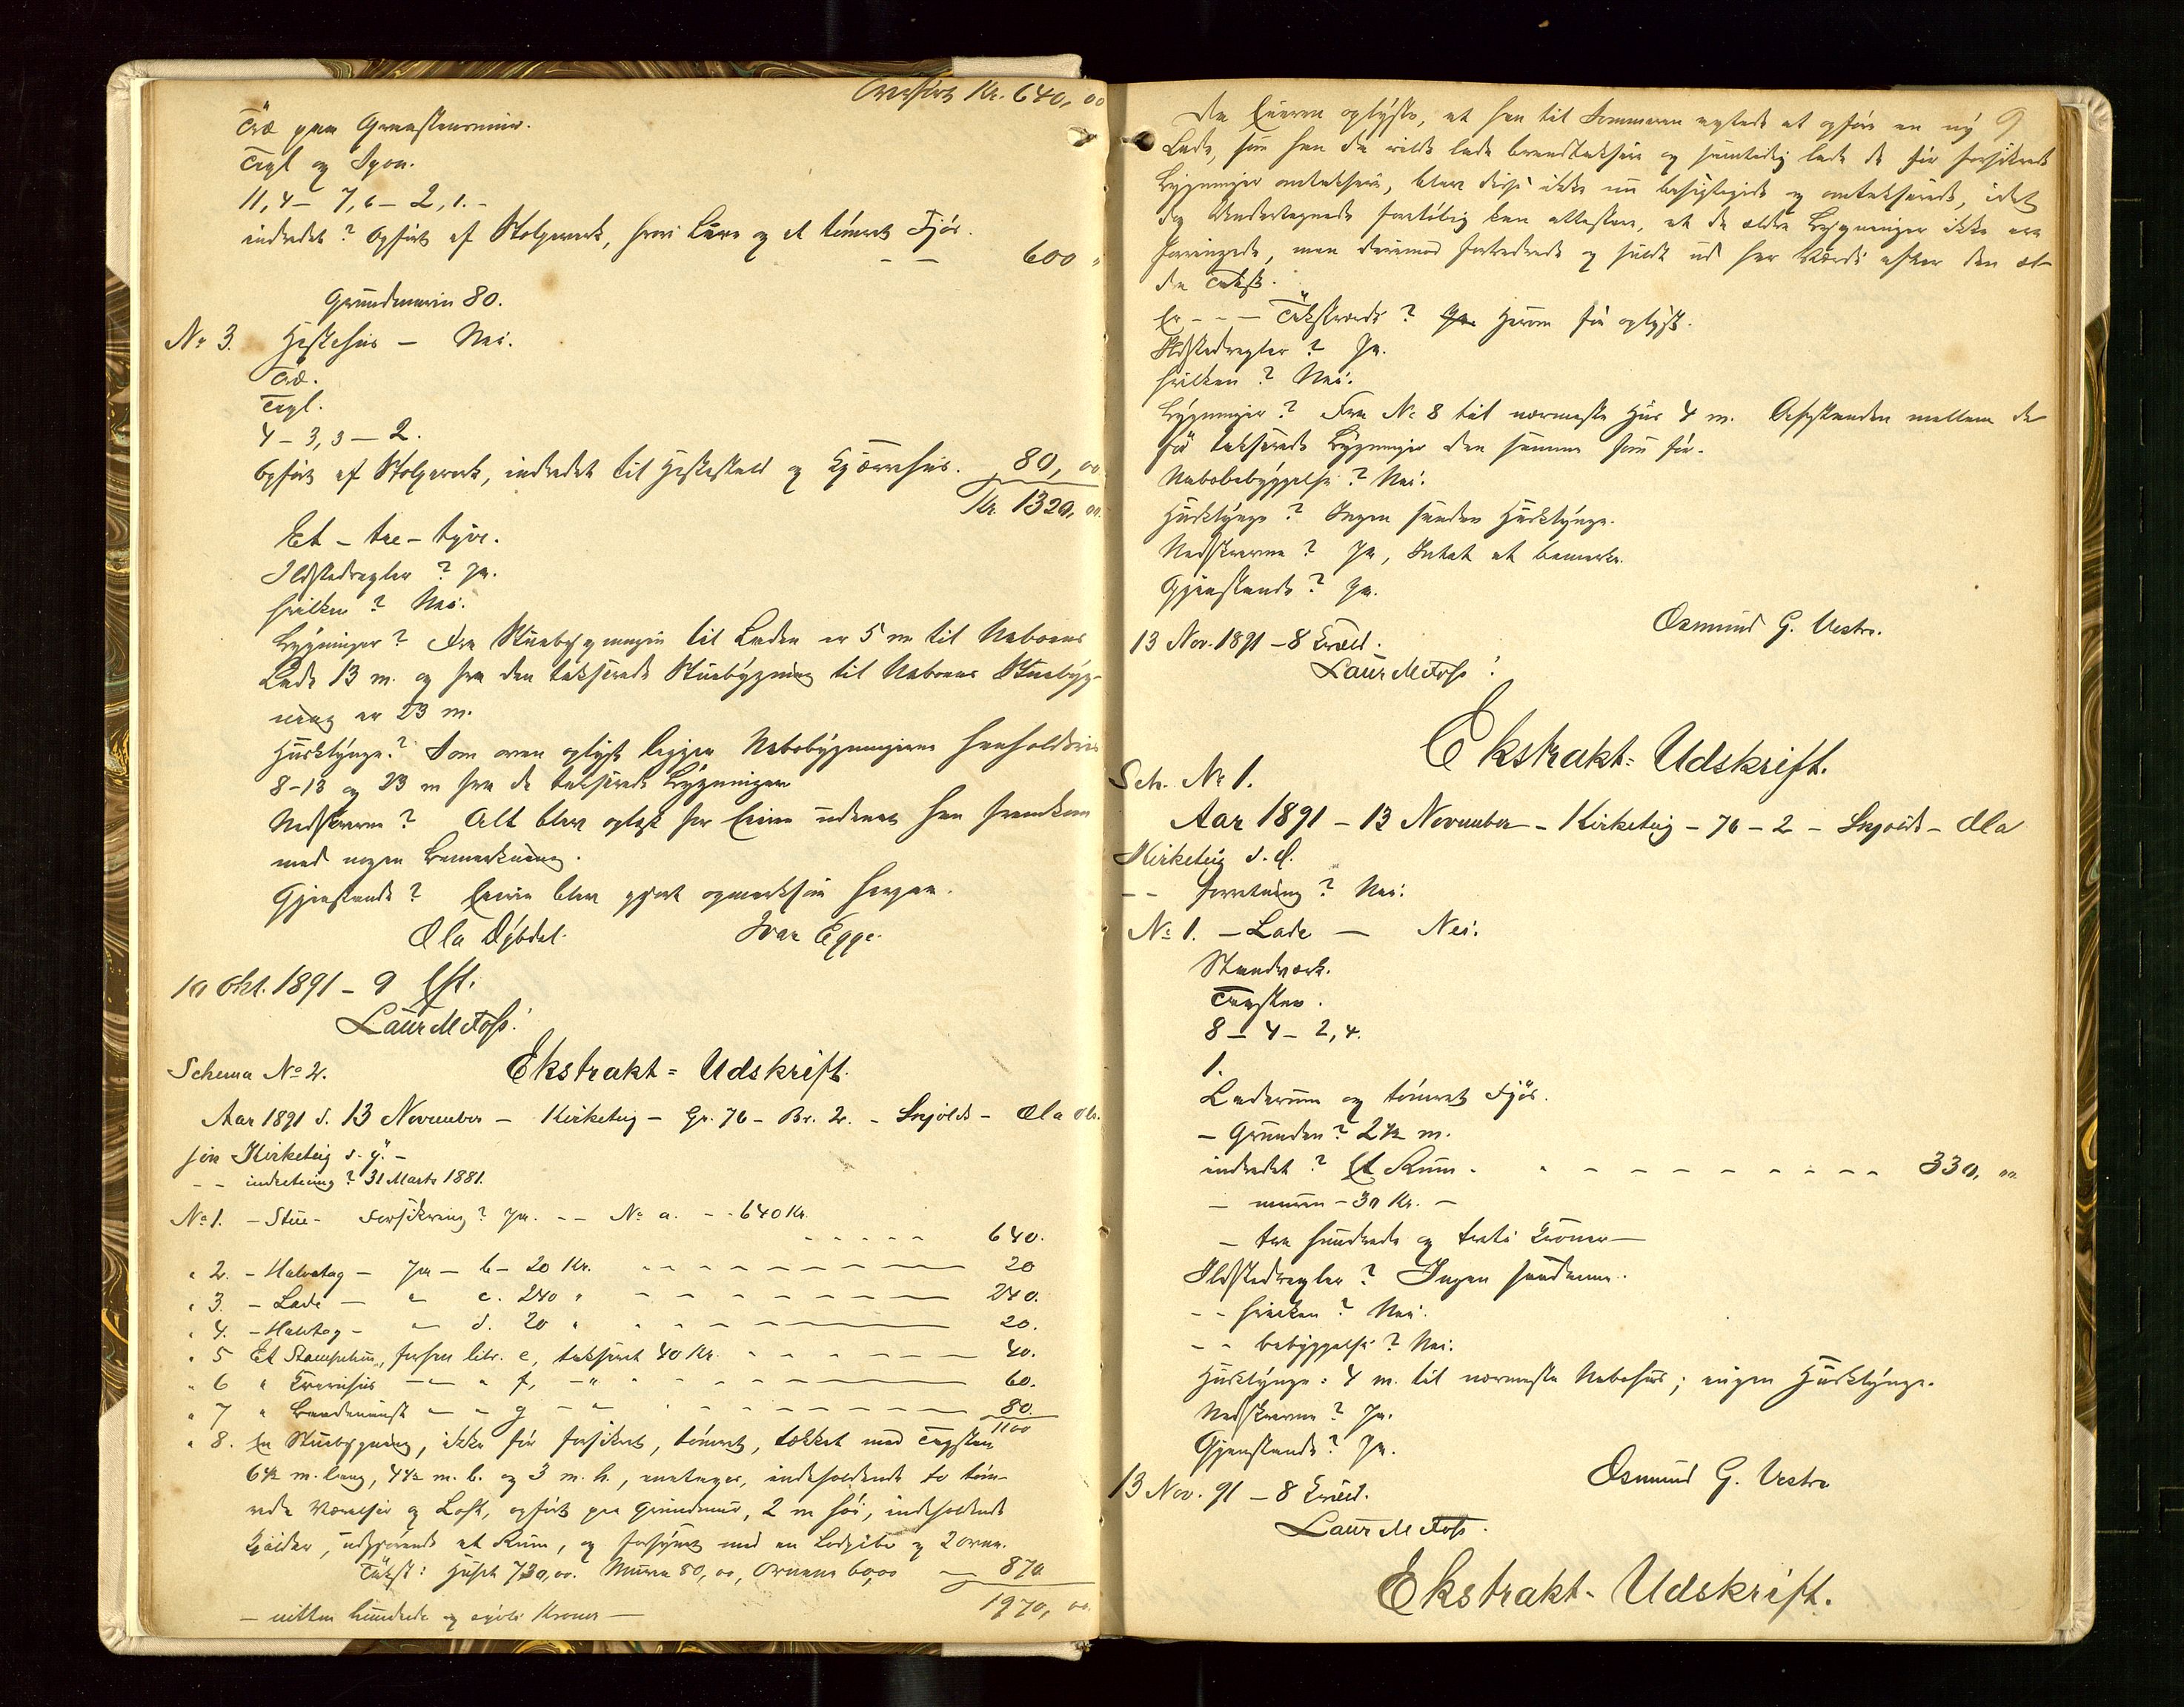 Overført Kr. 640,00
Træ paa Graastensmur.
Tegl og Spon.
11,4 – 7,6 – 2,1.–
indredet? Opført af Stolpeverk, hvori Løve og et tømret Fjøs.
– – 600 "
Grundmuren 80.
No 3. Hestehus – Nei.
Træ.
Tegl.
4 – 3,3 – 2.
Opført af Stolpeverk, indredet til Hestestald og Kjærrehus. 80,00
Kr. 1320,00.
Et – tre – tyve.
Ildstedregler? Ja.
hvilken? Nei.
Bygninger? Fra Stuebygningen til Laden er 5 m til Naboens
Lade 13 m. og fra den takserede Stuebygning til Naboens Stuebyg-
ning er 23 m.
Husklynge? Som oven oplyst ligger Nabobygningerne henholdsvis
8–13 og 23 m fra de takserede Bygninger
Nedskrevne? Alt blev oplæst for Eieren uden at han fremkom
med nogen Bemærkning.
Gjenstande? Eieren blev gjort opmerksom herpaa.
Ola Dybdal. Ivar Egge.
10 Okt. 1891 – 9 Eft.
Laur M Foss.
Schema No 2. Ekstrakt-Udskrift.
Aar 1891 d. 13 November – Kirketeig – Gr. 76 – Br. 2. – Skjolds – Ola Ols.
søn Kirketeig s. y. –
– – indretning? 31 Marts 1881.
No 1. – Stue – Forsikring? Ja. – – No a. – – 640 Kr.
640.
" 2. – Halvtag – Ja – b – 20 Kr. 20
" 3. – Lade – " c. 240 " 240.
" 4. – Halvtag – " d. 20 " 20.
" 5 Et Stampehus, forhen litr. e, takseret 40 Kr. 40.
" 6 " Kvernhus – " f, – " 60.
" 7 " – " g – " 80.
1100
" 8. En Stuebygning, ikke før forsikret, tømret, tækket med Tagsten
6½ m. lang, 4½ m. b. og 3 m. h., enetages, indeholdende to tøm-
rede Værelser og Loft, opført paa Grundmur, 2 m høi, indeholdende
Kjælder, udgjørende et Rum, og forsynet med en Lodpibe og 2 ovne.
Takst: Huset 730,00. Muren 80,00, Ovnene 60,00 870
1970,00.
– nitten hundrede og sytti Kroner –
9
Da Eieren oplyste, at han til Sommeren agtede at opføre en ny
Lade, som han da vilde lade brandtaksere og samtidig lade de før forsikrede
Bygninger omtaksere, blev disse ikke nu besigtigede og omtakserede, idet
dog Undertegnede foreløbig kan attestere, at de ældre Bygninger ikke ere
forringede, men derimod forbedrede og fuldt ud har Værdi efter den æl-
dre Takst.
Er – – – Takstværdi? Herom før oplyst.
Ildstedregler? Ja.
hvilken? Nei.
Bygninger? Fra No 8 til nærmeste Hus 4 m. Afstanden mellem de
før takserede Bygninger den samme som før.
Nabobebyggelse? Nei.
Husklynge? Ingen saadan Husklynge.
Nedskrevne? Ja, Intet at bemerke.
Gjenstande? Ja.
Osmund G. Vestre.
13 Nov. 1891 – 8 Kveld.
Laur M Foss.
Ekstrakt-Udskrift.
Sch. No 1.
Aar 1891 – 13 November – Kirketeig – 76 – 2 – Skjolds – Ola
Kirketeig d. e.
– – forretning? Nei.
No 1. – Lade – Nei.
Standverk.
Tagsten.
8 – 4 – 2,4.
1.
Laderum og tømret Fjøs.
– Grunden? 2½ m.
indredet? Et Rum. 330,00
– muren – 30 Kr. –
– tre hundrede og tretti Kroner –
Ildstedregler? Ingen saadanne.
– – hvilken? Nei.
– – bebyggelse? Nei.
Husklynge: 4 m. til nærmeste Nabohus; ingen Husklynge.
Nedskrevne? Ja.
Gjenstande? Ja.
Osmund G. Vestre
13 Nov. 91 – 8 Kveld.
Laur M Foss.
Ekstrakt-Udskrift.